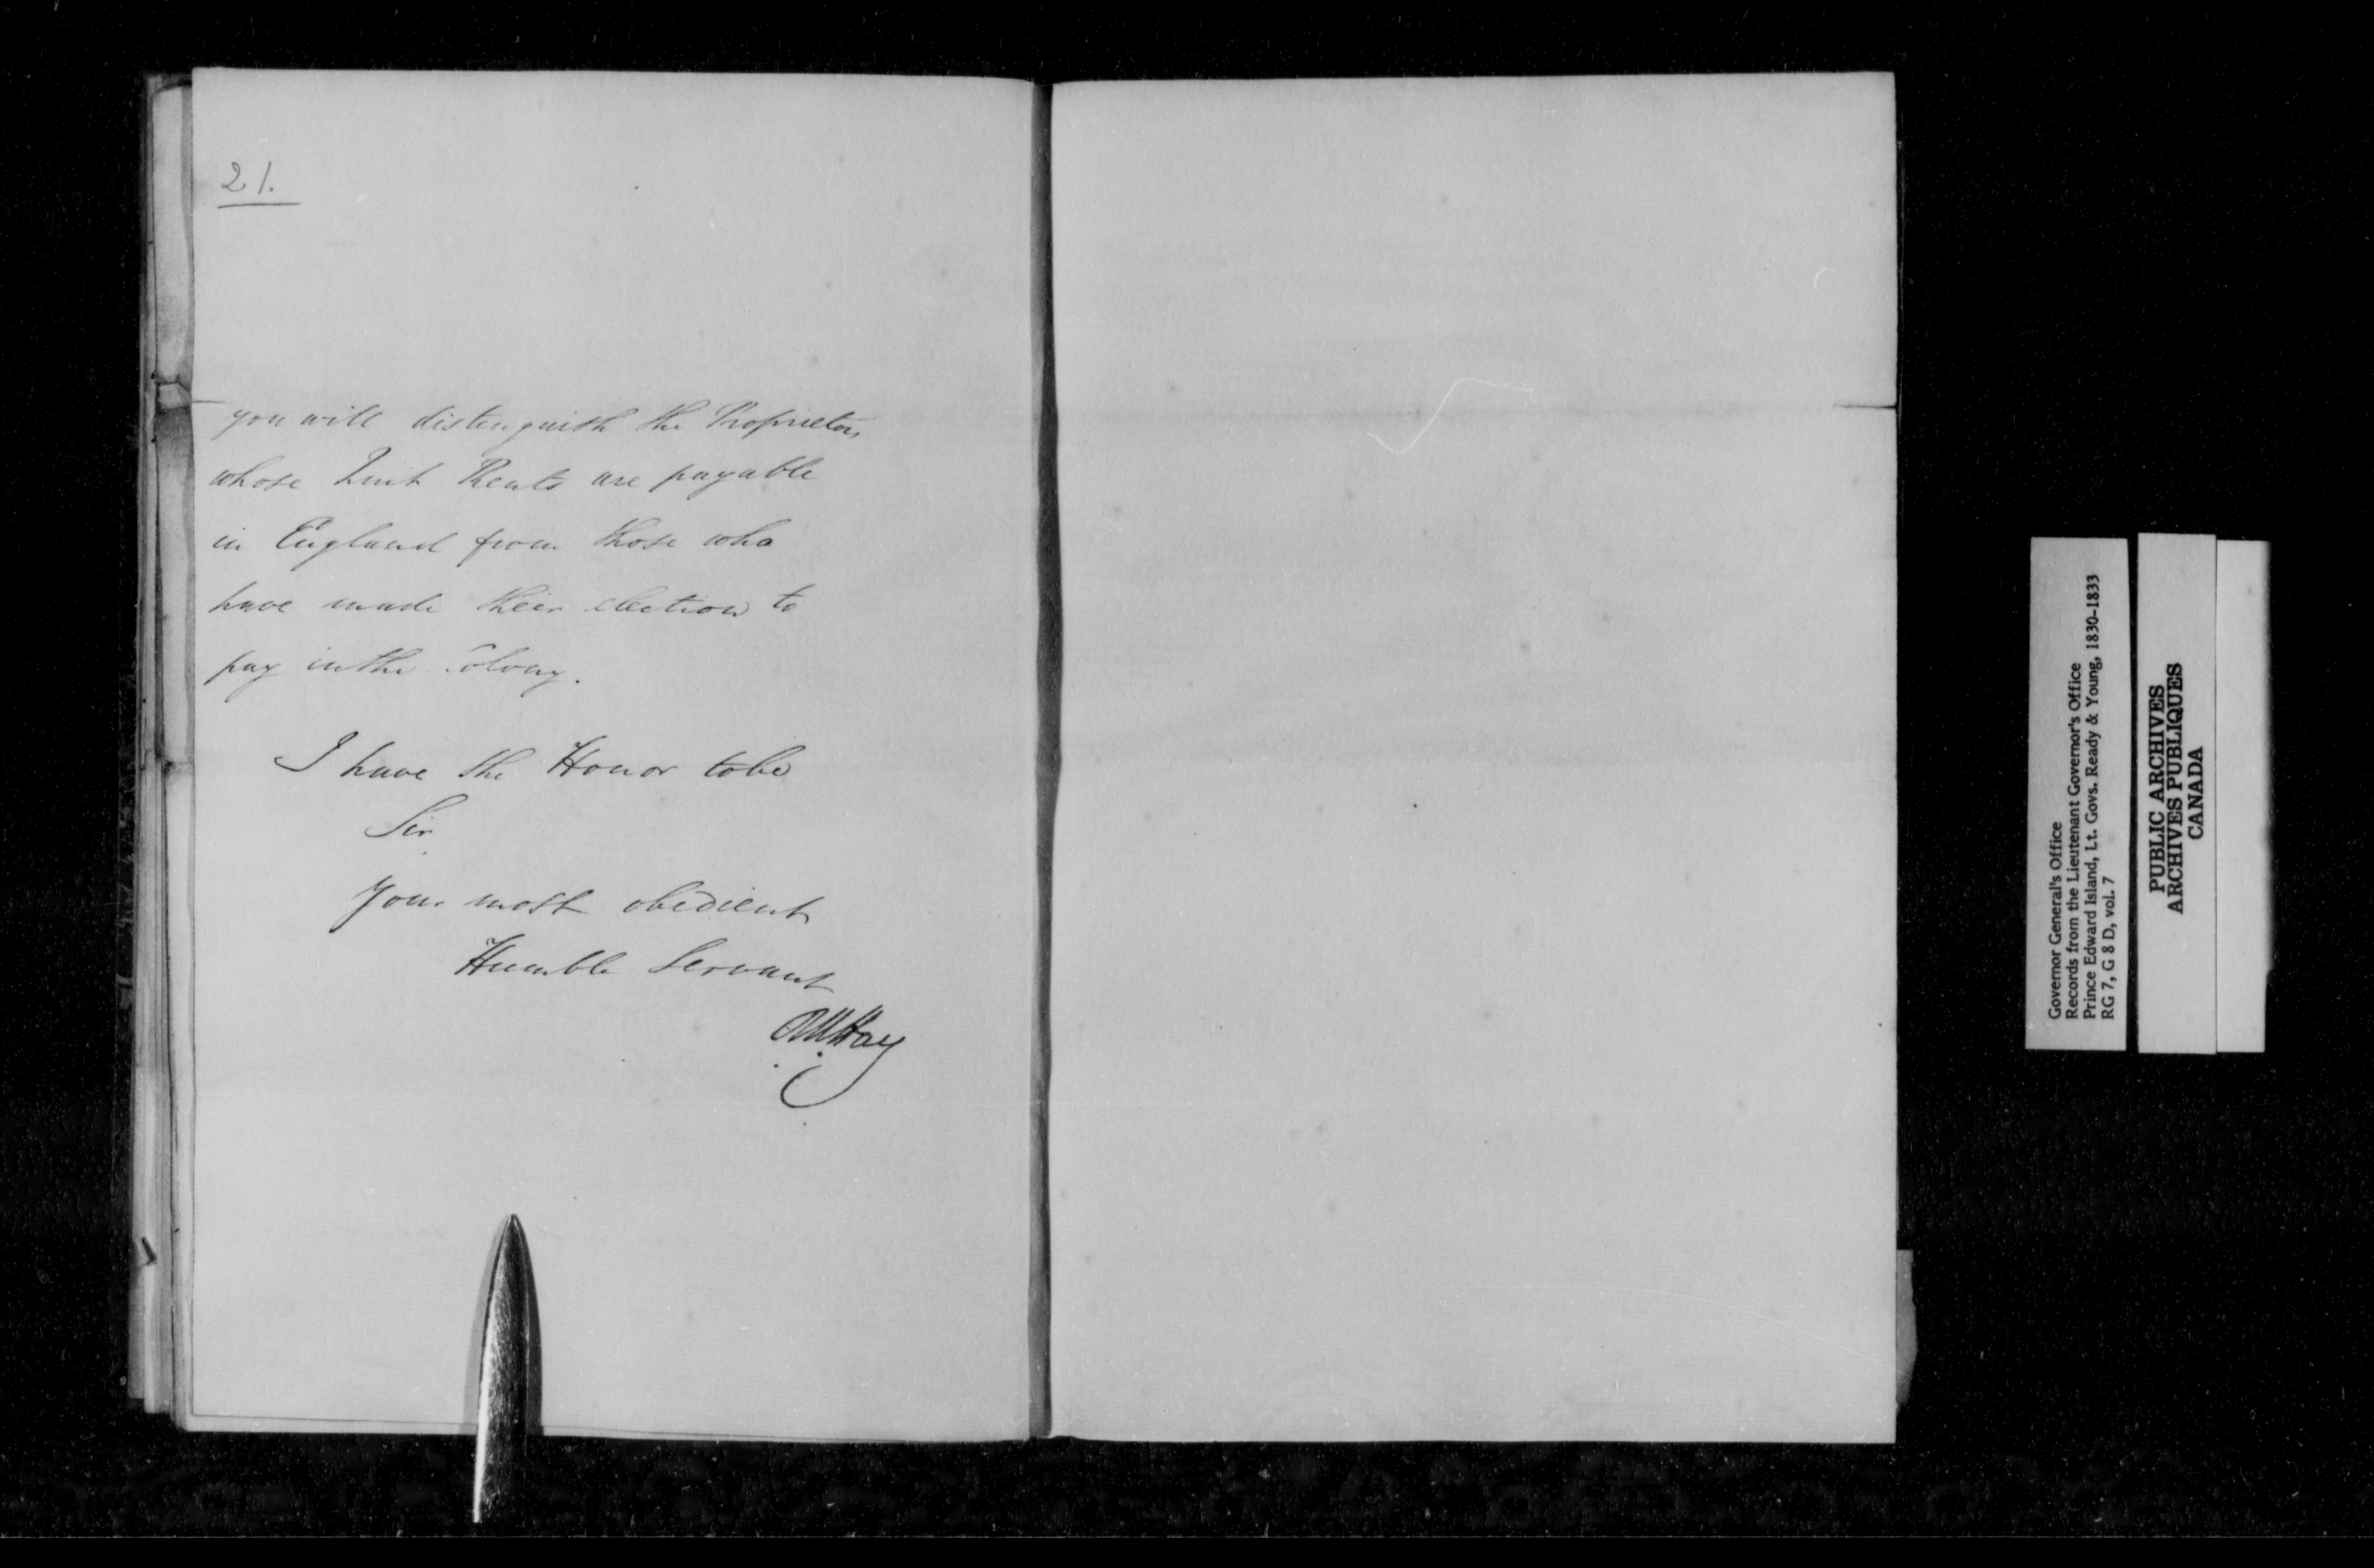 21.
you will distinguish the Proprietors
whose Quit Rents are payable
in England from those who
have made their election to
pay in the Colony.
I have the Honor to be
Sir
Your most obedient
Humble Servant
RWHay
Governor General's Office
Records from the Lieutenant Governor's Office
Prince Edward Island, Lt. Govs. Ready & Young, 1830-1833
RG 7, G 8 D, vol. 7
PUBLIC ARCHIVES
ARCHIVES PUBLIQUES
CANADA